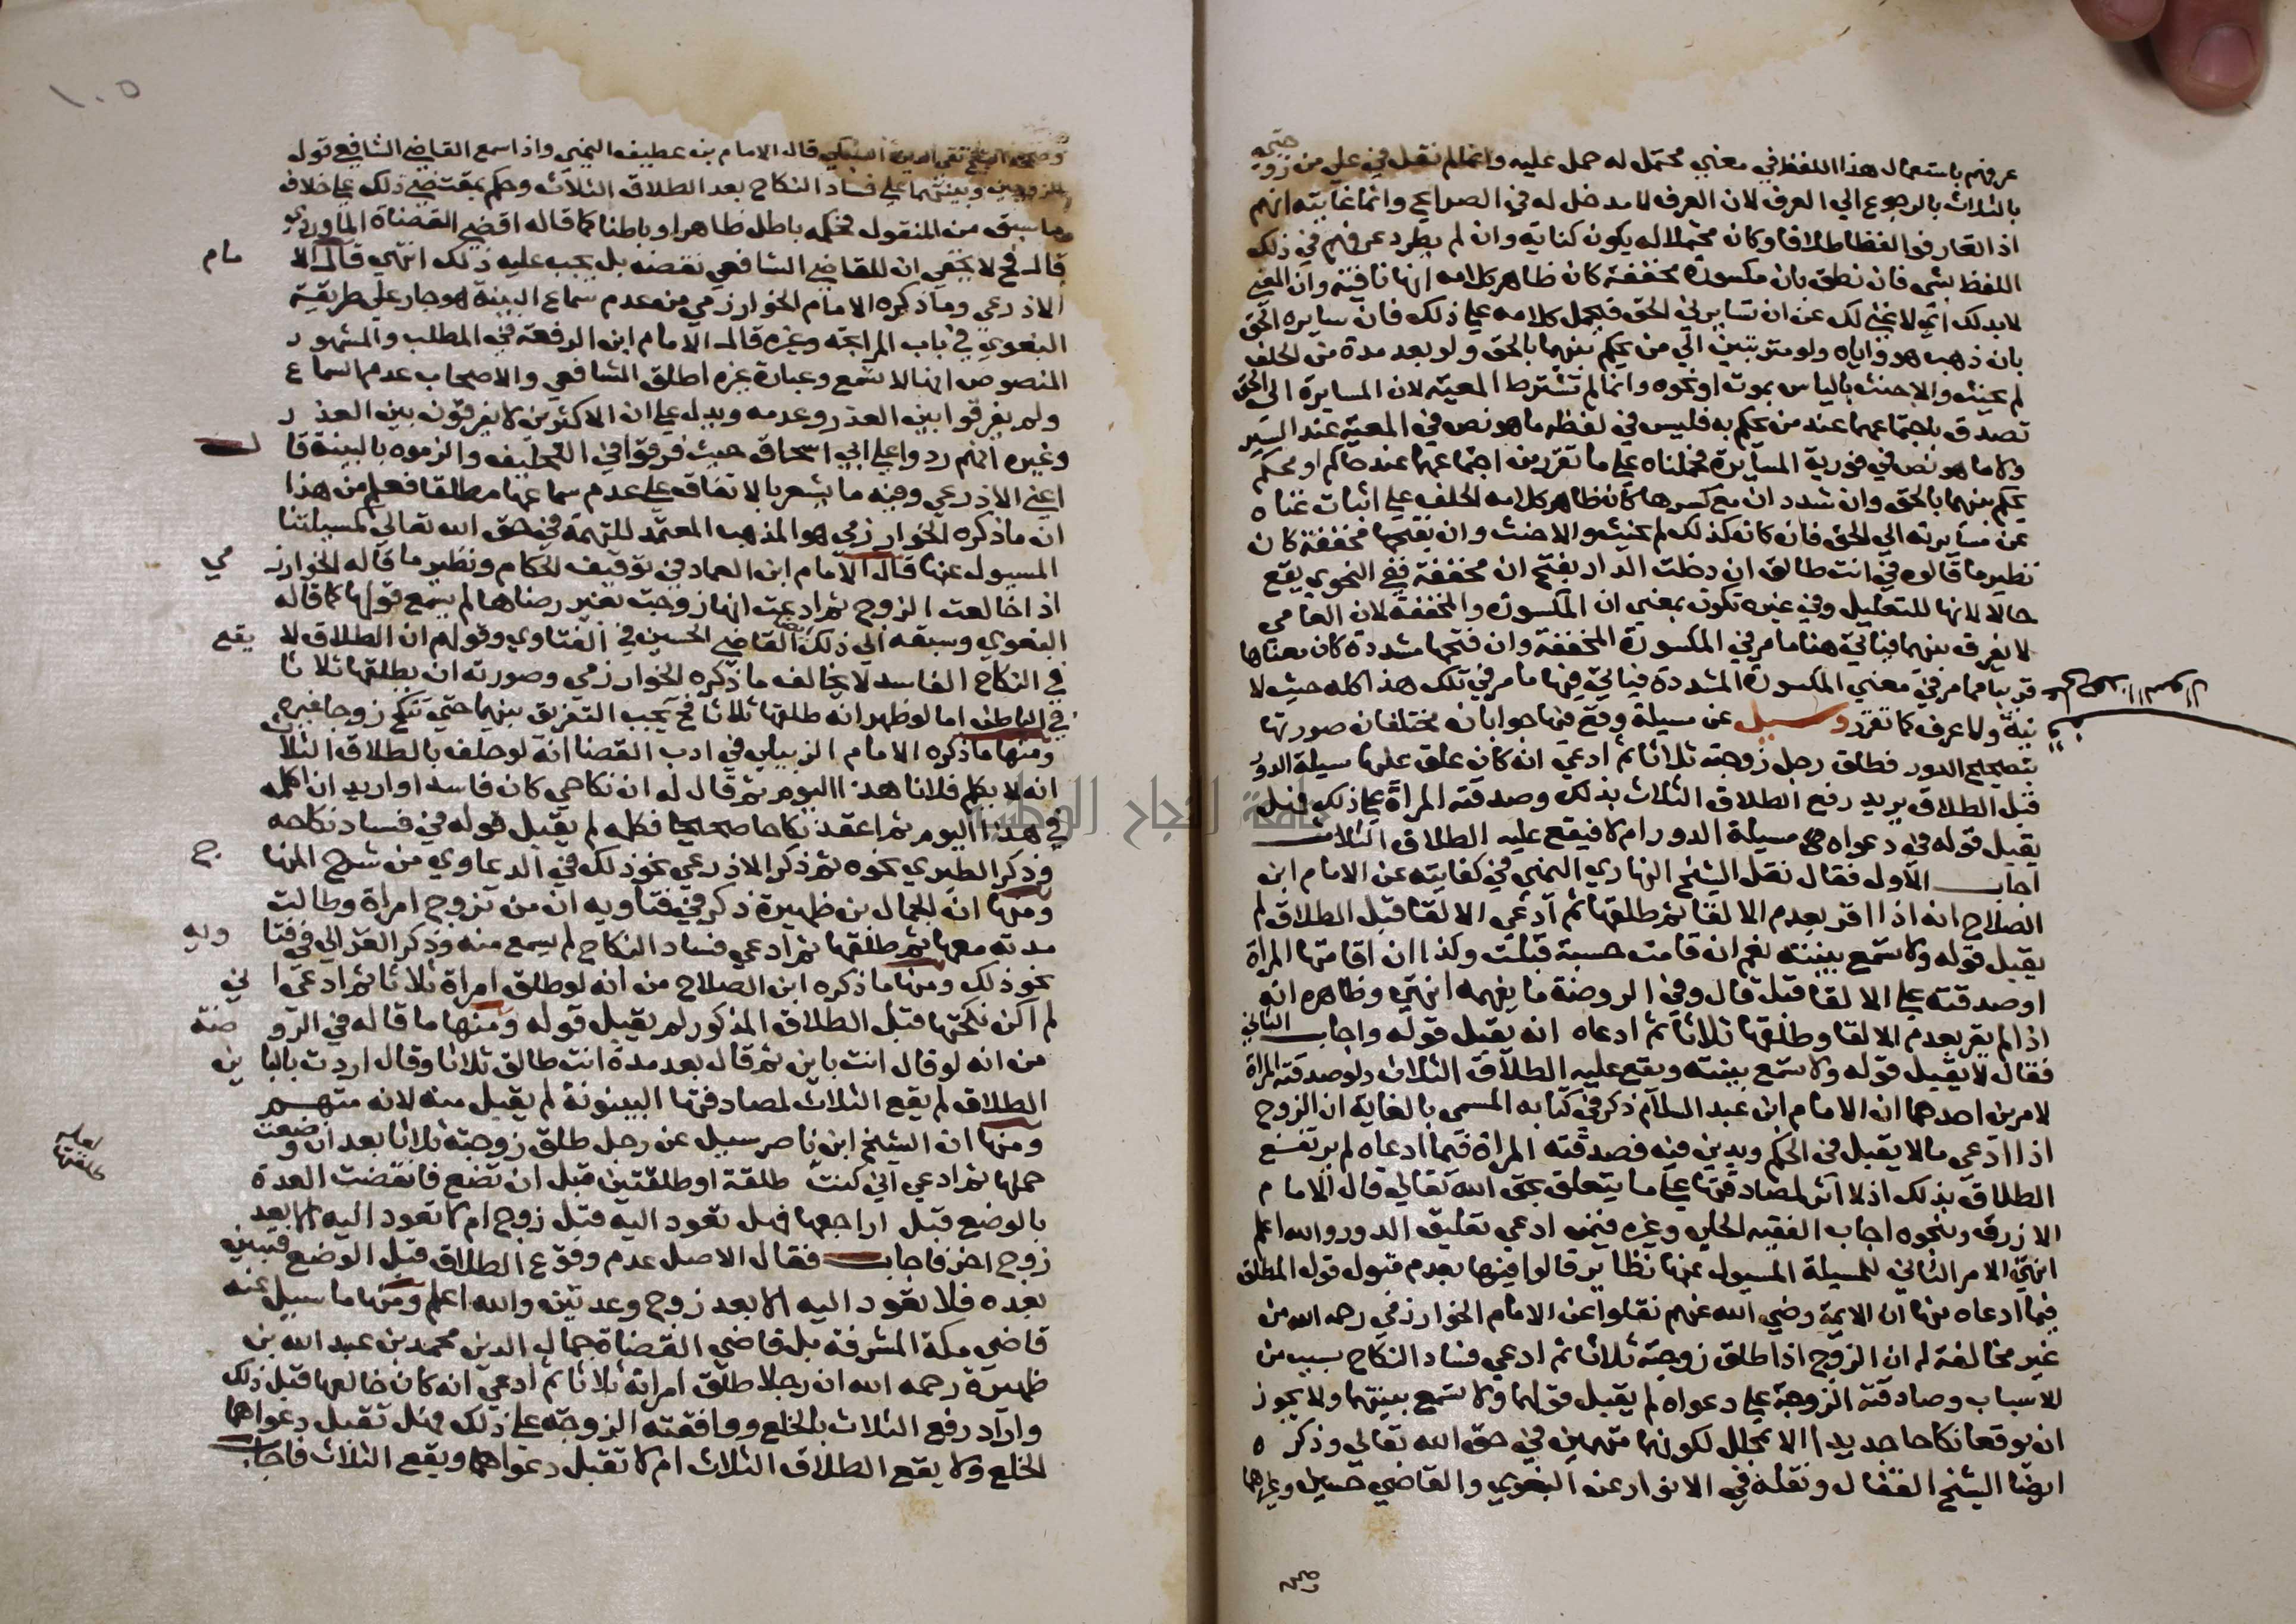 عرفهم باستعمال هذا اللفظ في معني محتمل له حمل عليه وانما لم نقل في علي من زوجتي
بالثلاث بالرجوع الي العرف لان العرف لا مدخل له في الصرايح وانما غايته انهم
اذا تعارفوا لفظا طلاقا وكان محتملا له يكون كناية وان لم يطرد عرفهم في ذلك
اللفظ بشي فان نطق بان مكسورة مخففة كان ظاهر كلامه انها نافية وان المعني
لا بد لك اني لا غني لك عن ان تسايرني الحق فيحمل كلامه علي ذلك فان سايره الحق
بان ذهب هو واياه ولو مترتبين الي من يحكم بينهما بالحق ولو بعد مدة من الحلف
لم يحنث والا حنث بالياس بموت او نحوه وانما لم تشترط المعية لان المسايرة الي الحق
تصدق باجتماعهما عند من يحكم به فليس في لفظه ما هو نص في المعية عند السير
ولا ما هو نص في فورية المسايرة فحملناه علي ما تقرر من اجتماعهما عند حاكم او محكم
يحكم بينهما بالحق وان شدد ان مع كسرها كان ظاهر كلامه الحلف علي اثبات غناه
عن مسايرته الي الحق فان كان كذلك لم يحنث والا حنث وان بفتحها مخففة كان
نظير ما قالوه في انت طالق ان دخلت الدار بفتح ان مخففة ففي النحوي يقع
حالا لانها للتعليل وفي غيره تكون بمعني ان المكسورة والمخففة لان العامي
لا يفرق بينهما فياتي هنا ما مر في المكسورة المخففة وان فتحها مشددة كان معناها
قريبا مما مر في معني المكسورة المشددة فياتي فيها ما مر في تلك هذا كله حيث لا
نية ولا عرف كما تقرر وسيل عن مسيلة وقع فيها جوابان مختلفان صورتها
بتصحيح الدور فطلق رجل زوجته ثلاثا ثم ادعي انه كان علق عليها مسيلة الدور
قبل الطلاق يريد رفع الطلاق الثلاث بذلك وصدقته المراة علي ذلك فهل
يقبل قوله في دعواه في مسيلة الدور ام لا فيقع عليه الطلاق الثلاث
اجاب الاول فقال نقل الشيخ النهاري اليمني في كفايته عن الامام ابن
الصلاح انه اذا اقر بعدم الالقا ثم طلقها ثم ادعي الالقا قبل الطلاق لم
يقبل قوله ولا تسمع بينته نعم ان قامت حسبة قبلت وكذا ان اقامتها المراة
او صدقته علي الالقا قبل قال وفي الروضة ما يفهمه انتهي وظاهره انه
اذا لم يقر بعدم الالقا وطلقها ثلاثا ثم ادعاه انه يقبل قوله واجاب الثاني
فقال لا يقبل قوله ولا تسمع بينته ويقع عليه الطلاق الثلاث ولو صدقته المراة
لامرين احدهما ان الامام ابن عبد السلام ذكر في كتابه المسمي بالغاية ان الزوج
اذا ادعي ما لا يقبل في الحكم ويدين فيه فصدقته المراة فيما ادعاه لم يرتفع
الطلاق بذلك اذ لا اثر لمصادقتها علي ما يتعلق بحق الله تعالي قال الامام
الازرق وبنحوه اجاب الفقيه الحلي وغيره فيمن ادعي تعليق الدور والله اعلم
انتهي الامر الثاني للمسيلة المسيول عنها نظاير قالوا فيها بعدم قبول قول المطلق
فيما ادعاه منها ان الايمة رضي الله عنهم نقلوا عن الامام الخوارزمي رحمه الله من
غير مخالفة له ان الزوج اذا طلق زوجته ثلاثا ثم ادعي فساد النكاح بسبب من
الاسباب وصادقته الزوجة علي دعواه لم يقبل قولهما ولا تسمع بينتهما ولا يجوز
ان يوقعا نكاحا جديدا الا بمحلل لكونهما متهمين في حق الله تعالي وذكره
ايضا الشيخ القفال ونقله في الانوار عن البغوي والقاضي حسين وغيرهما
١٠٥
وصححه الشيخ تقي الدين السبكي قاله الامام بن عطيف اليمني واذا سمع القاضي الشافعي قول
الزوجين وبينتهما علي فساد النكاح بعد الطلاق الثلاث وحكم بمقتضي ذلك علي خلاف
ما سبق من المنقول فحكمه باطل ظاهرا وباطنا كما قاله اقضي القضاة الماوردي
قال فح لا يخفي ان للقاضي الشافعي نقضه بل يجب عليه ذلك انتهي قال الامام
الاذرعي وما ذكره الامام الخوارزمي من عدم سماع البينة هو جار علي طريقة
البغوي في باب المرابحة وغيره قال الامام ابن الرفعة في المطلب والمشهور
المنصوص انها لا تسمع وعبارة غيره اطلق الشافعي والاصحاب عدم السماع
ولم يفرقوا بين العذر وعدمه ويدل علي ان الاكثرين لا يفرقون بين العذر
وغيره انهم ردوا علي ابي اسحاق حيث فرقوا في التحليف والزموه بالبينة قال
اعني الاذرعي وفيه ما يشعر بالاتفاق علي عدم سماعها مطلقا فعلم من هذا
ان ما ذكره الخوارزمي هو المذهب المعتمد للتهمة في حق الله تعالي لمسيلتنا
المسيول عنها قال الامام ابن العماد في توقيف الحكام ونظير ما قاله الخوارزمي
اذا خالعت الزوج ثم ادعت انها زوجت بغير رضاها لم يسمع قولها كما قاله
البغوي وسبقه الي ذلك القاضي الحسين في الفتاوي وقولهم ان الطلاق لا يقع
في النكاح الفاسد لا يخالف ما ذكره الخوارزمي وصورته ان يطلقها ثلاثا
في الباطن اما لو ظهر انه طلقها ثلاثا فح يجب التفريق بينهما حتي تنكح زوجا غيره
ومنها ما ذكره الامام الزبيلي في ادب القضا انه لو حلف بالطلاق الثلاث
انه لا يكلم فلانا هذا اليوم ثم قال له ان نكاحي كان فاسدا واريد ان اكلمه
في هذا اليوم ثم اعقد نكاحا صحيحا فكلمه لم يقبل قوله في فساد نكاحه
وذكر الطبري نحوه ثم ذكر الاذرعي نحو ذلك في الدعاوي من شرح المنهاج
ومنها ان الجمال بن ظهيرة ذكر في فتاويه ان من تزوج امراة وطالت
مدته معها ثم طلقها ثم ادعي فساد النكاح لم يسمع منه وذكر الغزالي في فتاويه
نحو ذلك ومنها ما ذكره ابن الصلاح من انه لو طلق امراة ثلاثا ثم ادعي اني
لم اكن نكحتها قبل الطلاق المذكور لم يقبل قوله ومنها ما قاله في الروضة
من انه لو قال انت باين ثم قال بعد مدة انت طالق ثلاثا وقال اردت بالباين
الطلاق لم يقع الثلاث لمصادفتها البينونة لم يقبل منه لانه متهم
ومنها ان الشيخ ابن ناصر سيل عن رجل طلق زوجته ثلاثا بعد ان وضعت
حملها ثم ادعي اني كنت طلقة او طلقتين قبل ان تضع فانقضت العدة
لعله طلقتها
بالوضع قبل اراجعها فهل تعود اليه قبل زوج ام لا تعود اليه الا بعد
زوج اخر فاجاب فقال الاصل عدم وقوع الطلاق قبل الوضع فتبين
بعده فلا تعود اليه الا بعد زوج وعدتين والله اعلم ومنها ما سيل عنه
قاضي مكة المشرفة بل قاضي القضاة جمال الدين محمد بن عبد الله بن
ظهيرة رحمه الله ان رجلا طلق امراته ثلاثا ثم ادعي انه كان خالعها قبل ذلك
واراد رفع الثلاث بالخلع ووافقته الزوجة علي ذلك فهل تقبل دعواهما
الخلع ولا يقع الطلاق الثلاث ام لا تقبل دعواهما ويقع الثلاث فاجاب